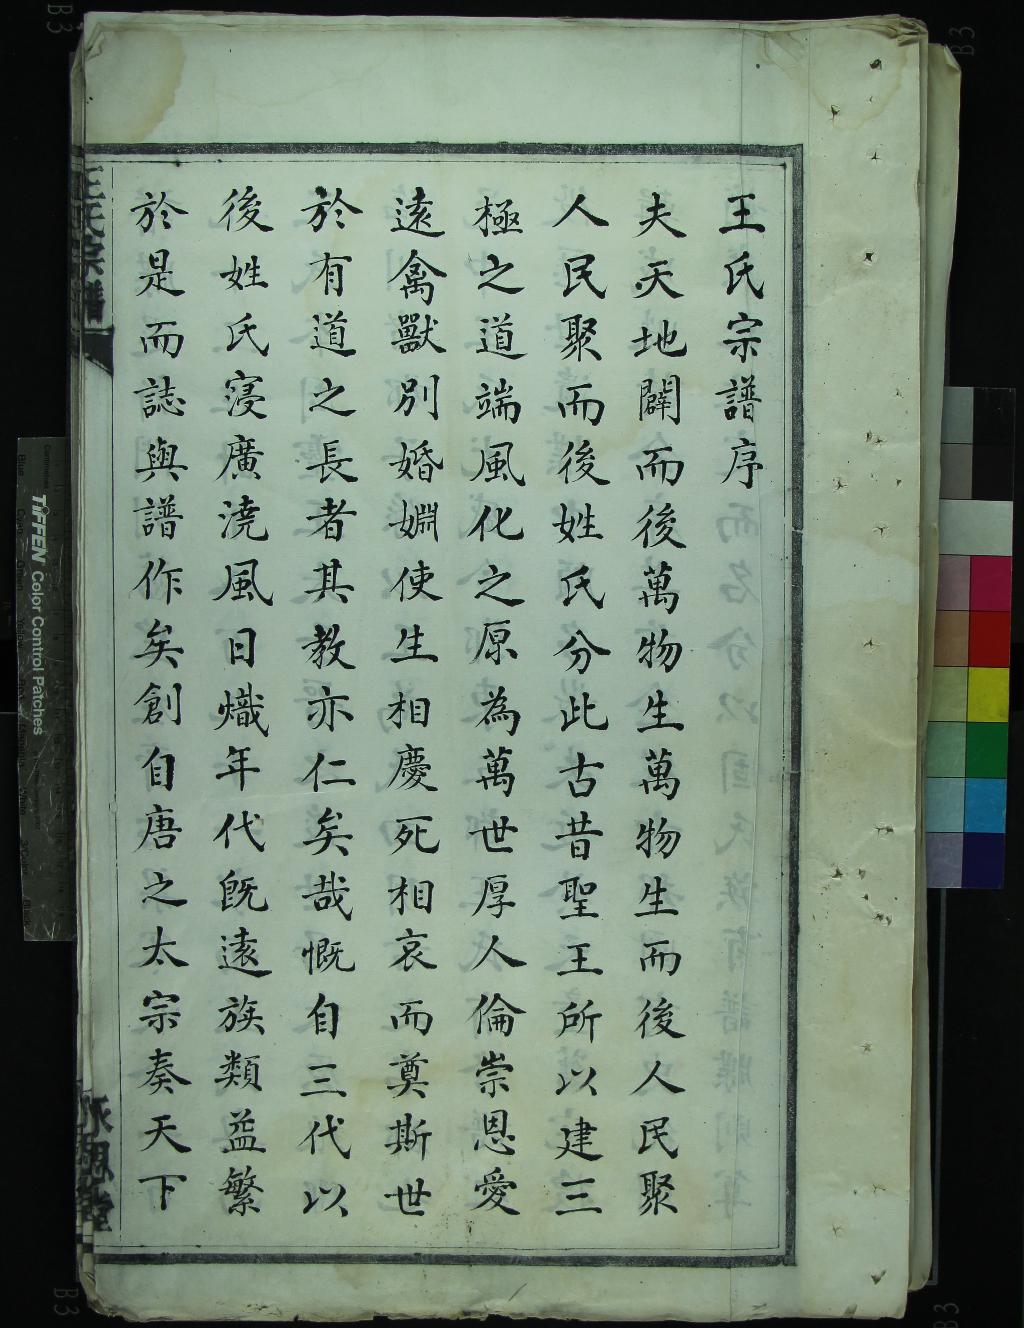 王氏宗譜序
夫天地闢而後萬物生萬物生而後人民聚
人民聚而後姓氏分此古昔聖王所以建三
極之道端風化之原為萬世厚人倫崇恩愛
遠禽獸別婚婣使生相慶死相哀而奠斯世
於有道之長者其教亦仁矣哉慨自三代以
後姓氏寖廣澆風日熾年代既遠族類益繁
於是而誌與譜作矣創自唐之太宗奏天下
王氏宗譜
TIFFEN Color Control Patches
B3
B3
B3
B3